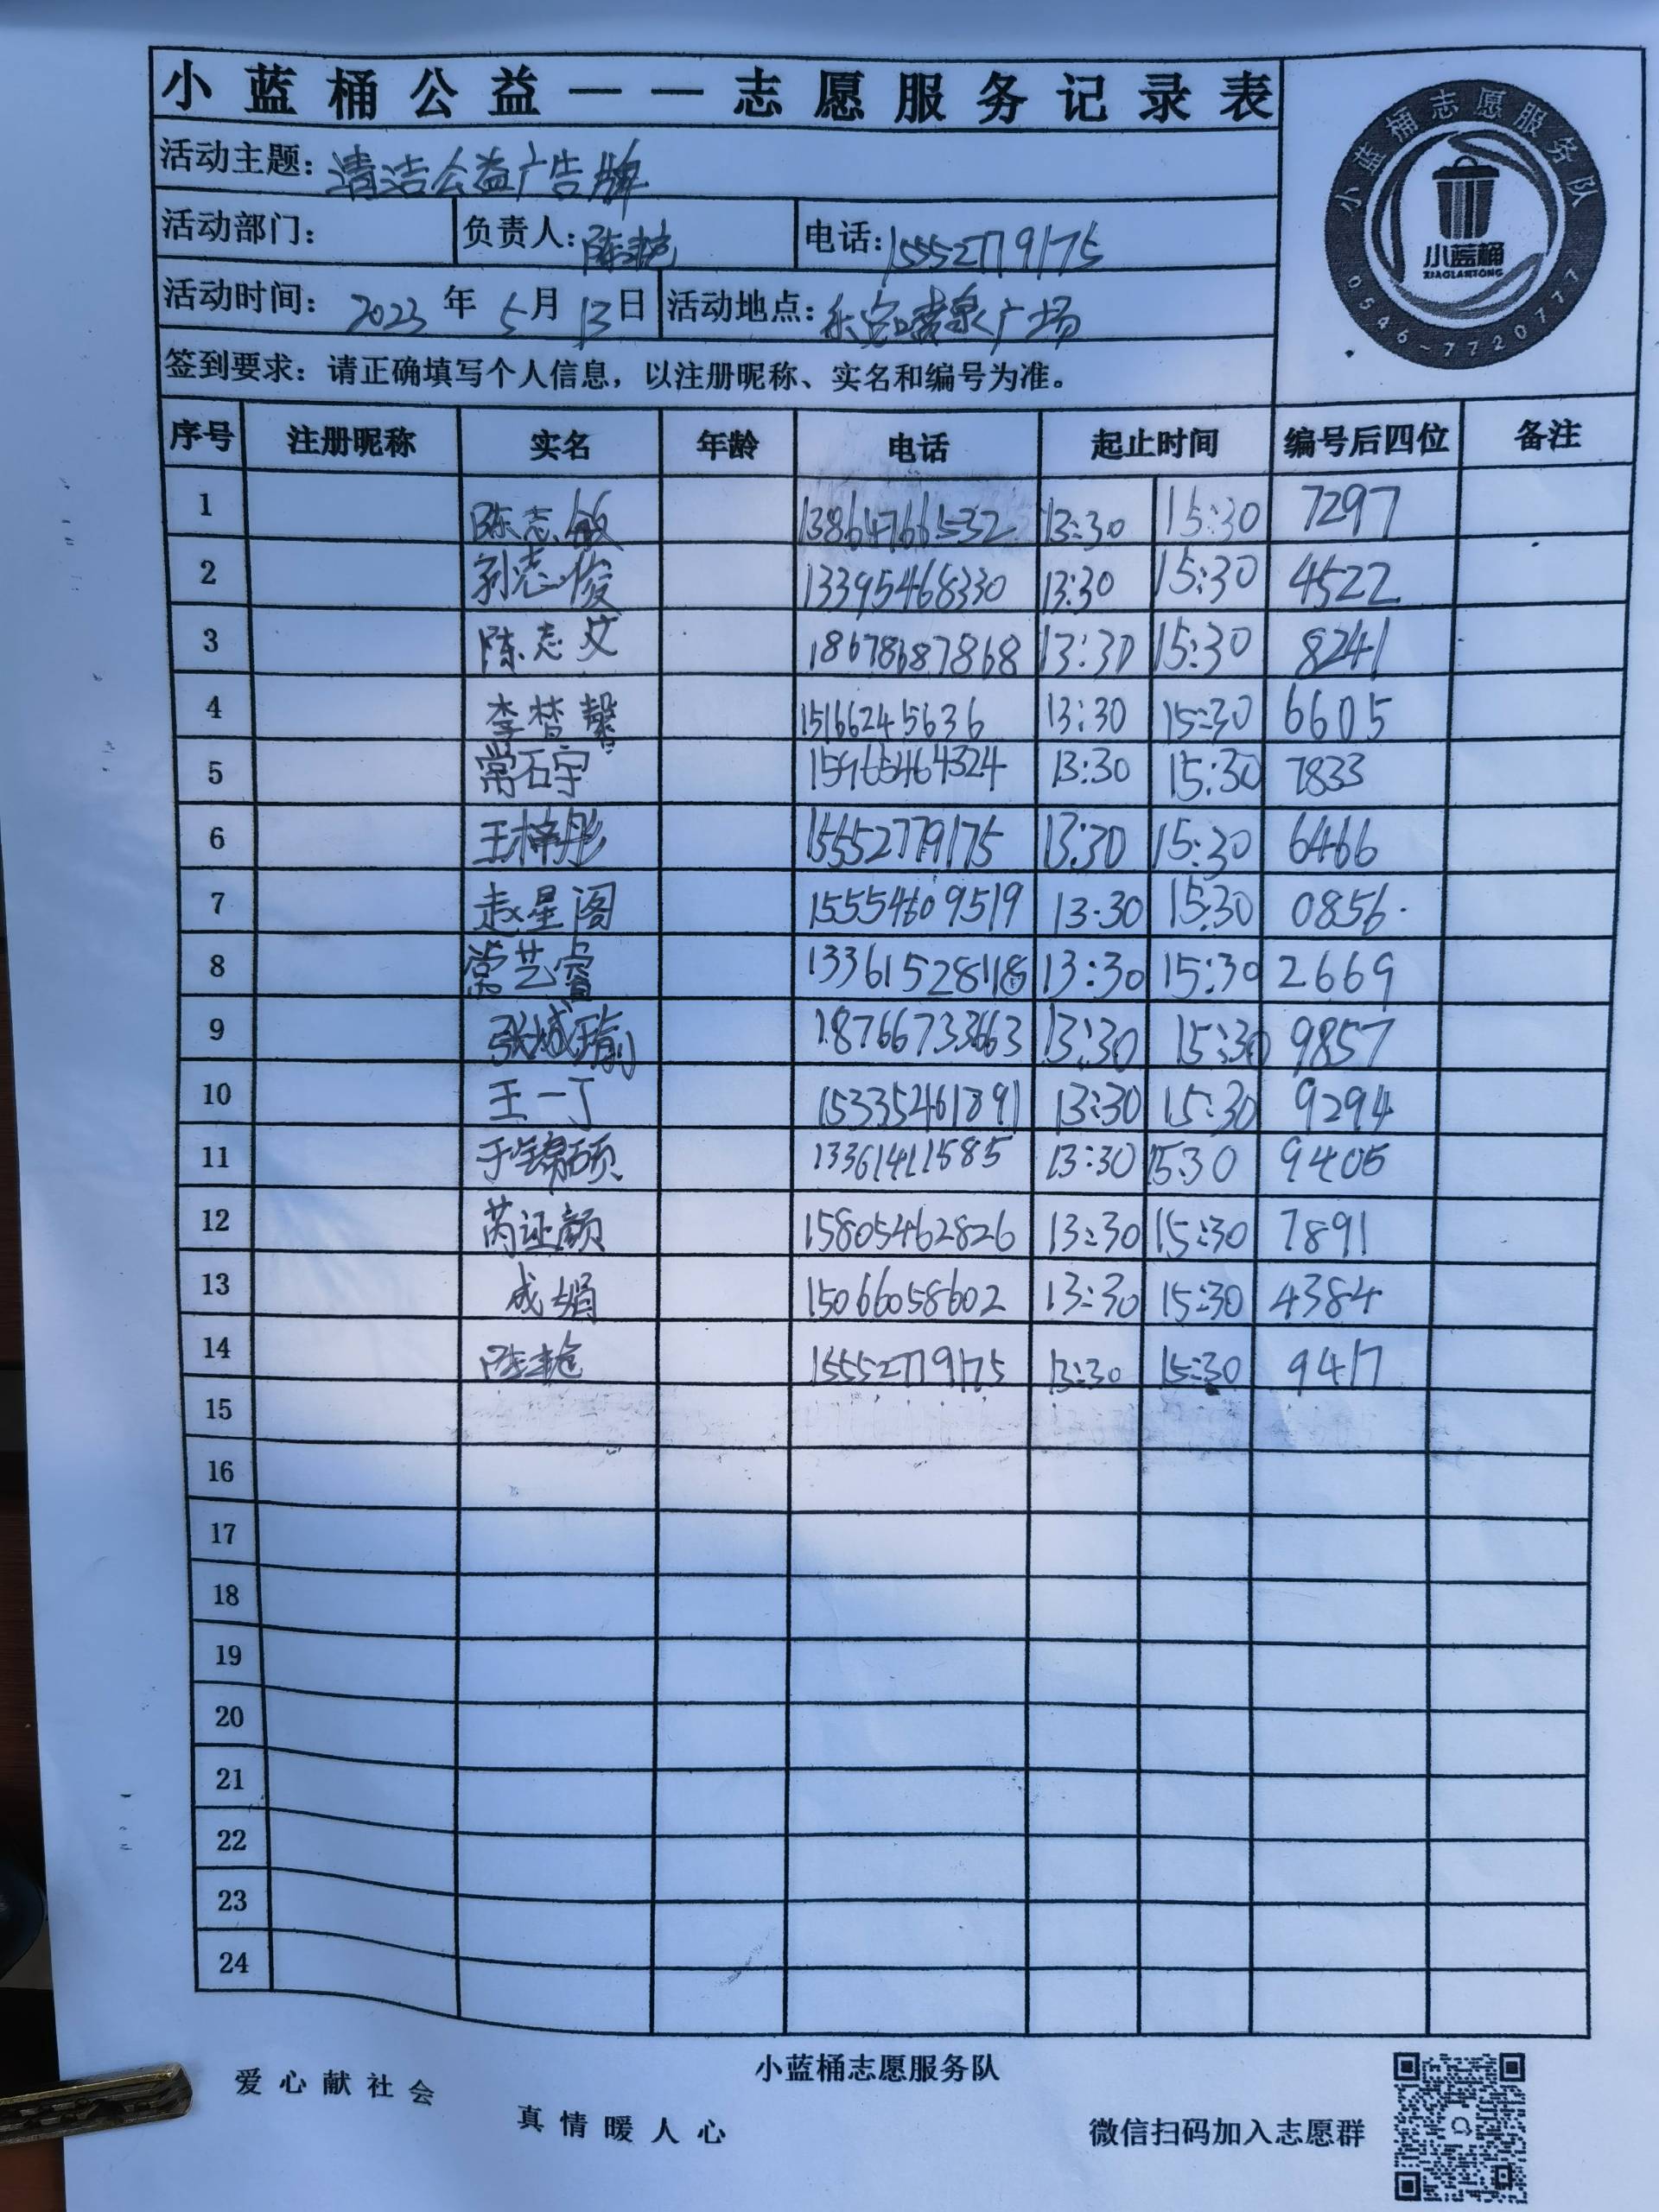 小蓝桶公益——志愿服务记录表
小蓝桶志愿服务队
小蓝桶
XIAOLANTONG
0546-7720777
活动主题：清洁公益广告牌
活动部门： 负责人：陈艳 电话：15552779175
活动时间：2023年5月13日 活动地点：乐安喷泉广场
签到要求：请正确填写个人信息，以注册昵称、实名和编号为准。
序号 注册昵称 实名 年龄 电话 起止时间 编号后四位 备注
1 陈志敏 13864766532 13:30 15:30 7297
2 孙志俊 13395468330 13:30 15:30 4522
3 陈志文 18678687868 13:30 15:30 8241
4 李梦馨 15166245636 13:30 15:30 6605
5 常石宇 15965464324 13:30 15:30 7833
6 王梓彤 15552779175 13:30 15:30 6466
7 赵星阁 15554609519 13:30 15:30 0856.
8 常艺睿 13361528118 13:30 15:30 2669
9 张城瑜 18766733663 13:30 15:30 9857
10 王一丁 15335461891 13:30 15:30 9294
11 于锦硕 13361411585 13:30 15:30 9405
12 芮证颜 15805462826 13:30 15:30 7891
13 成娟 15066058602 13:30 15:30 4384
14 陈艳 15552779175 13:30 15:30 9417
15
16
17
18
19
20
21
22
23
24
爱心献社会
小蓝桶志愿服务队
真情暖人心
微信扫码加入志愿群